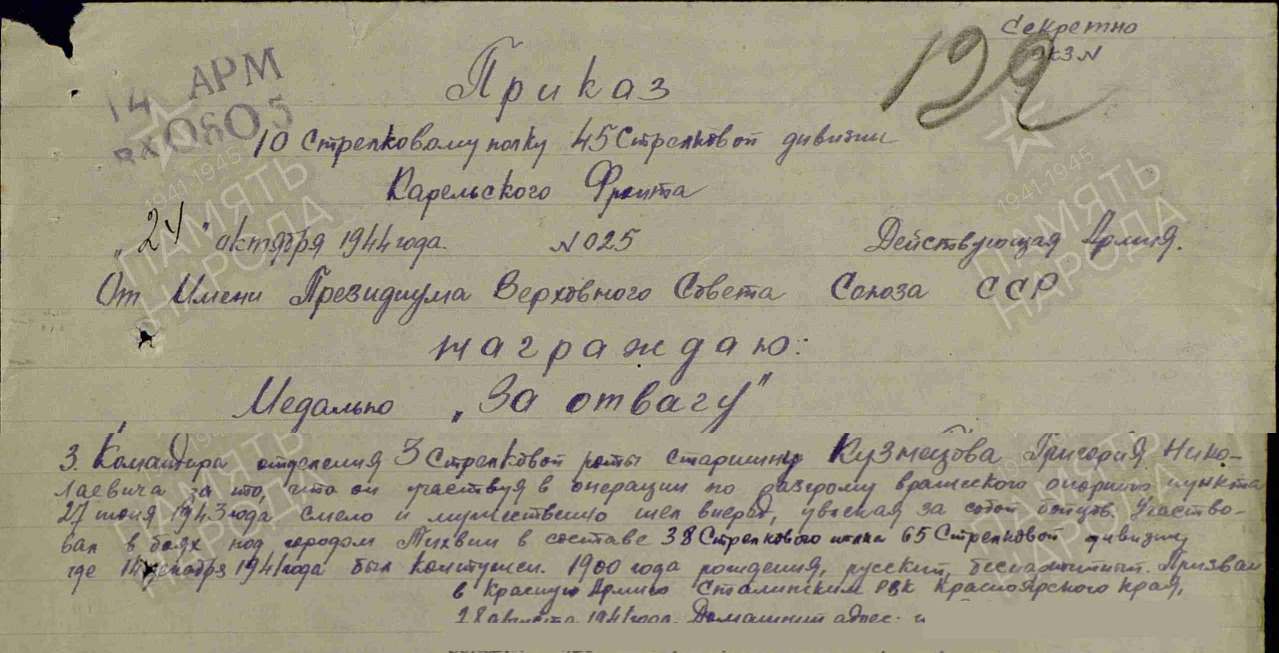 Секретно
экз N
192
14 АРМ
вх 0605
Приказ
10 Стрелковому полку 45 Стрелковой дивизии
Карельского Фронта
"24" октября 1944 года. N 025 Действующая Армия.
От Имени Президиума Верховного Совета Союза ССР
награждаю:
Медалью "За отвагу"
3. Командира отделения 3 Стрелковой роты старшину Кузнецова Григория Нико-
лаевича за то, что он участвуя в операции по разгрому вражеского опорного пункта
27 июня 1943 года смело и мужественно шел вперед, увлекая за собой бойцов. Участво-
вал в боях под городом Лихвин в составе 38 Стрелкового полка 65 Стрелковой дивизии,
где декабря 1941 года был контужен. 1900 года рождения, русский, беспартийный. Призван
в Красную Армию Сталинским РВК Красноярского края,
28 августа 1941 года. Домашний адрес: г
1941 1945
ПАМЯТЬ
НАРОДА
1941 1945
ПАМЯТЬ
НАРОДА